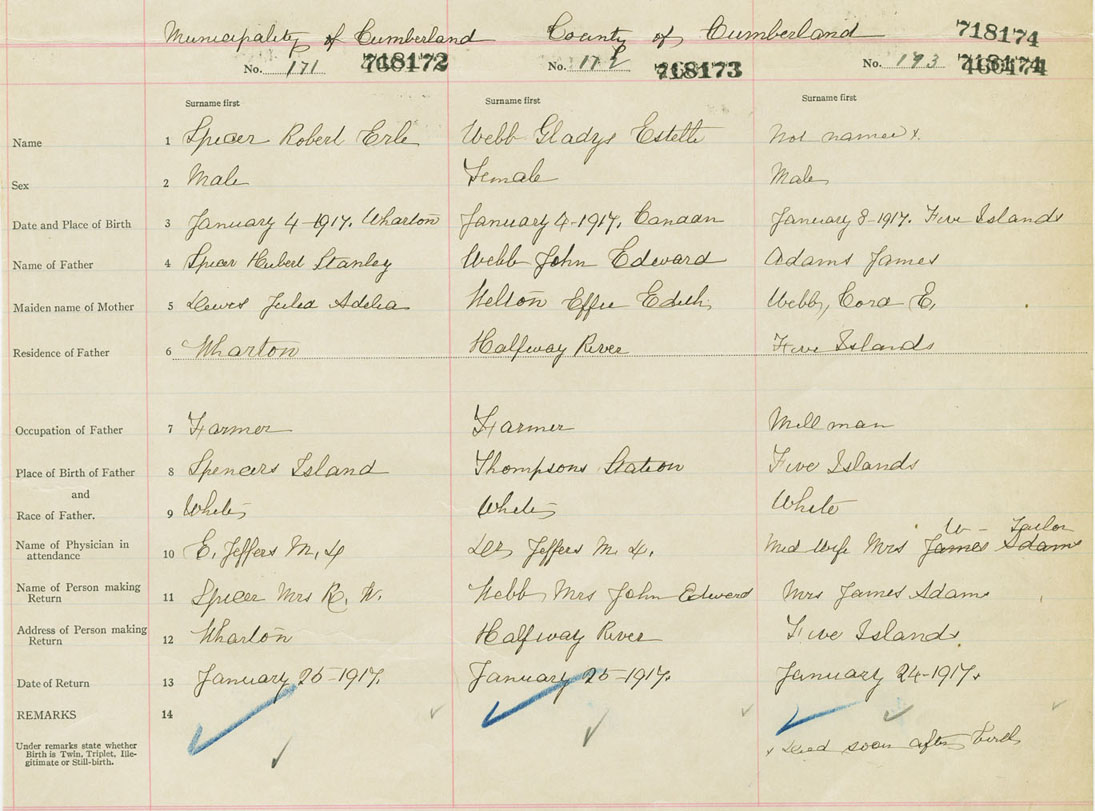 Municipality of Cumberland County of Cumberland 718174
No. 171 718172 No. 172 718173 No. 173 718174
Surname first Surname first Surname first
Name 1 Spicer Robert Erle Webb Gladys Estelle Not named x.
Sex 2 Male Female Male
Date and Place of Birth 3 January 4-1917. Wharton January 4-1917. Canaan January 8-1917. Five Islands
Name of Father 4 Spicer Hubert Stanley Webb John Edward Adams James
Maiden name of Mother 5 Julia Adelia Welton Effie Edith Webb, Cora E.
Residence of Father 6 Wharton Halfway River Five Islands
Occupation of Father 7 Farmer Farmer Mill man
Place of Birth of Father 8 Spencers Island Thompsons Station Five Islands
and
Race of Father. 9 White White White
W- Tailor
Name of Physician in
attendance 10 E. Jeffers M.D. Dr Jeffers M.D. Mid Wife Mrs James Adams
Name of Person making
Return 11 Spicer Mrs R. W. Webb Mrs John Edward Mrs James Adams
Address of Person making
Return 12 Wharton Halfway River Five Islands
Date of Return 13 January 25-1917. January 25-1917. January 24-1917.
REMARKS 14
Under remarks state whether
Birth is Twin, Triplet, Ille-
gitimate or Still-birth.
x Died soon after birth